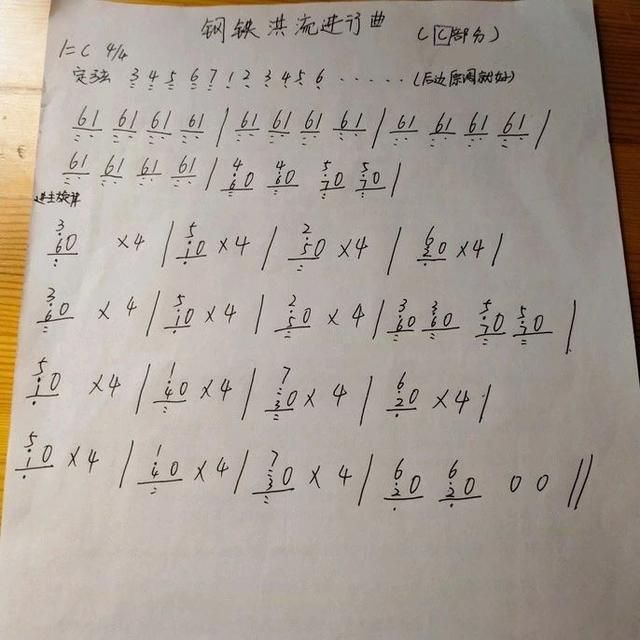 钢铁洪流进行曲 (C部分)
1=C 4/4
定弦 3 4 5 6 7 1 2 3 4 5 6 ······ (后边原调就好)
61 61 61 61 | 61 61 61 61 | 61 61 61 61 |
61 61 61 61 | 4/60 4/60 5/70 5/70 |
进主旋律
3/60 ×4 | 5/10 ×4 | 2/50 ×4 | 6/20 ×4 |
3/60 ×4 | 5/10 ×4 | 2/50 ×4 | 3/60 3/60 5/70 5/70 |
5/10 ×4 | 1/40 ×4 | 7/30 ×4 | 6/20 ×4 |
5/10 ×4 | 1/40 ×4 | 7/30 ×4 | 6/20 6/20 0 0 ||